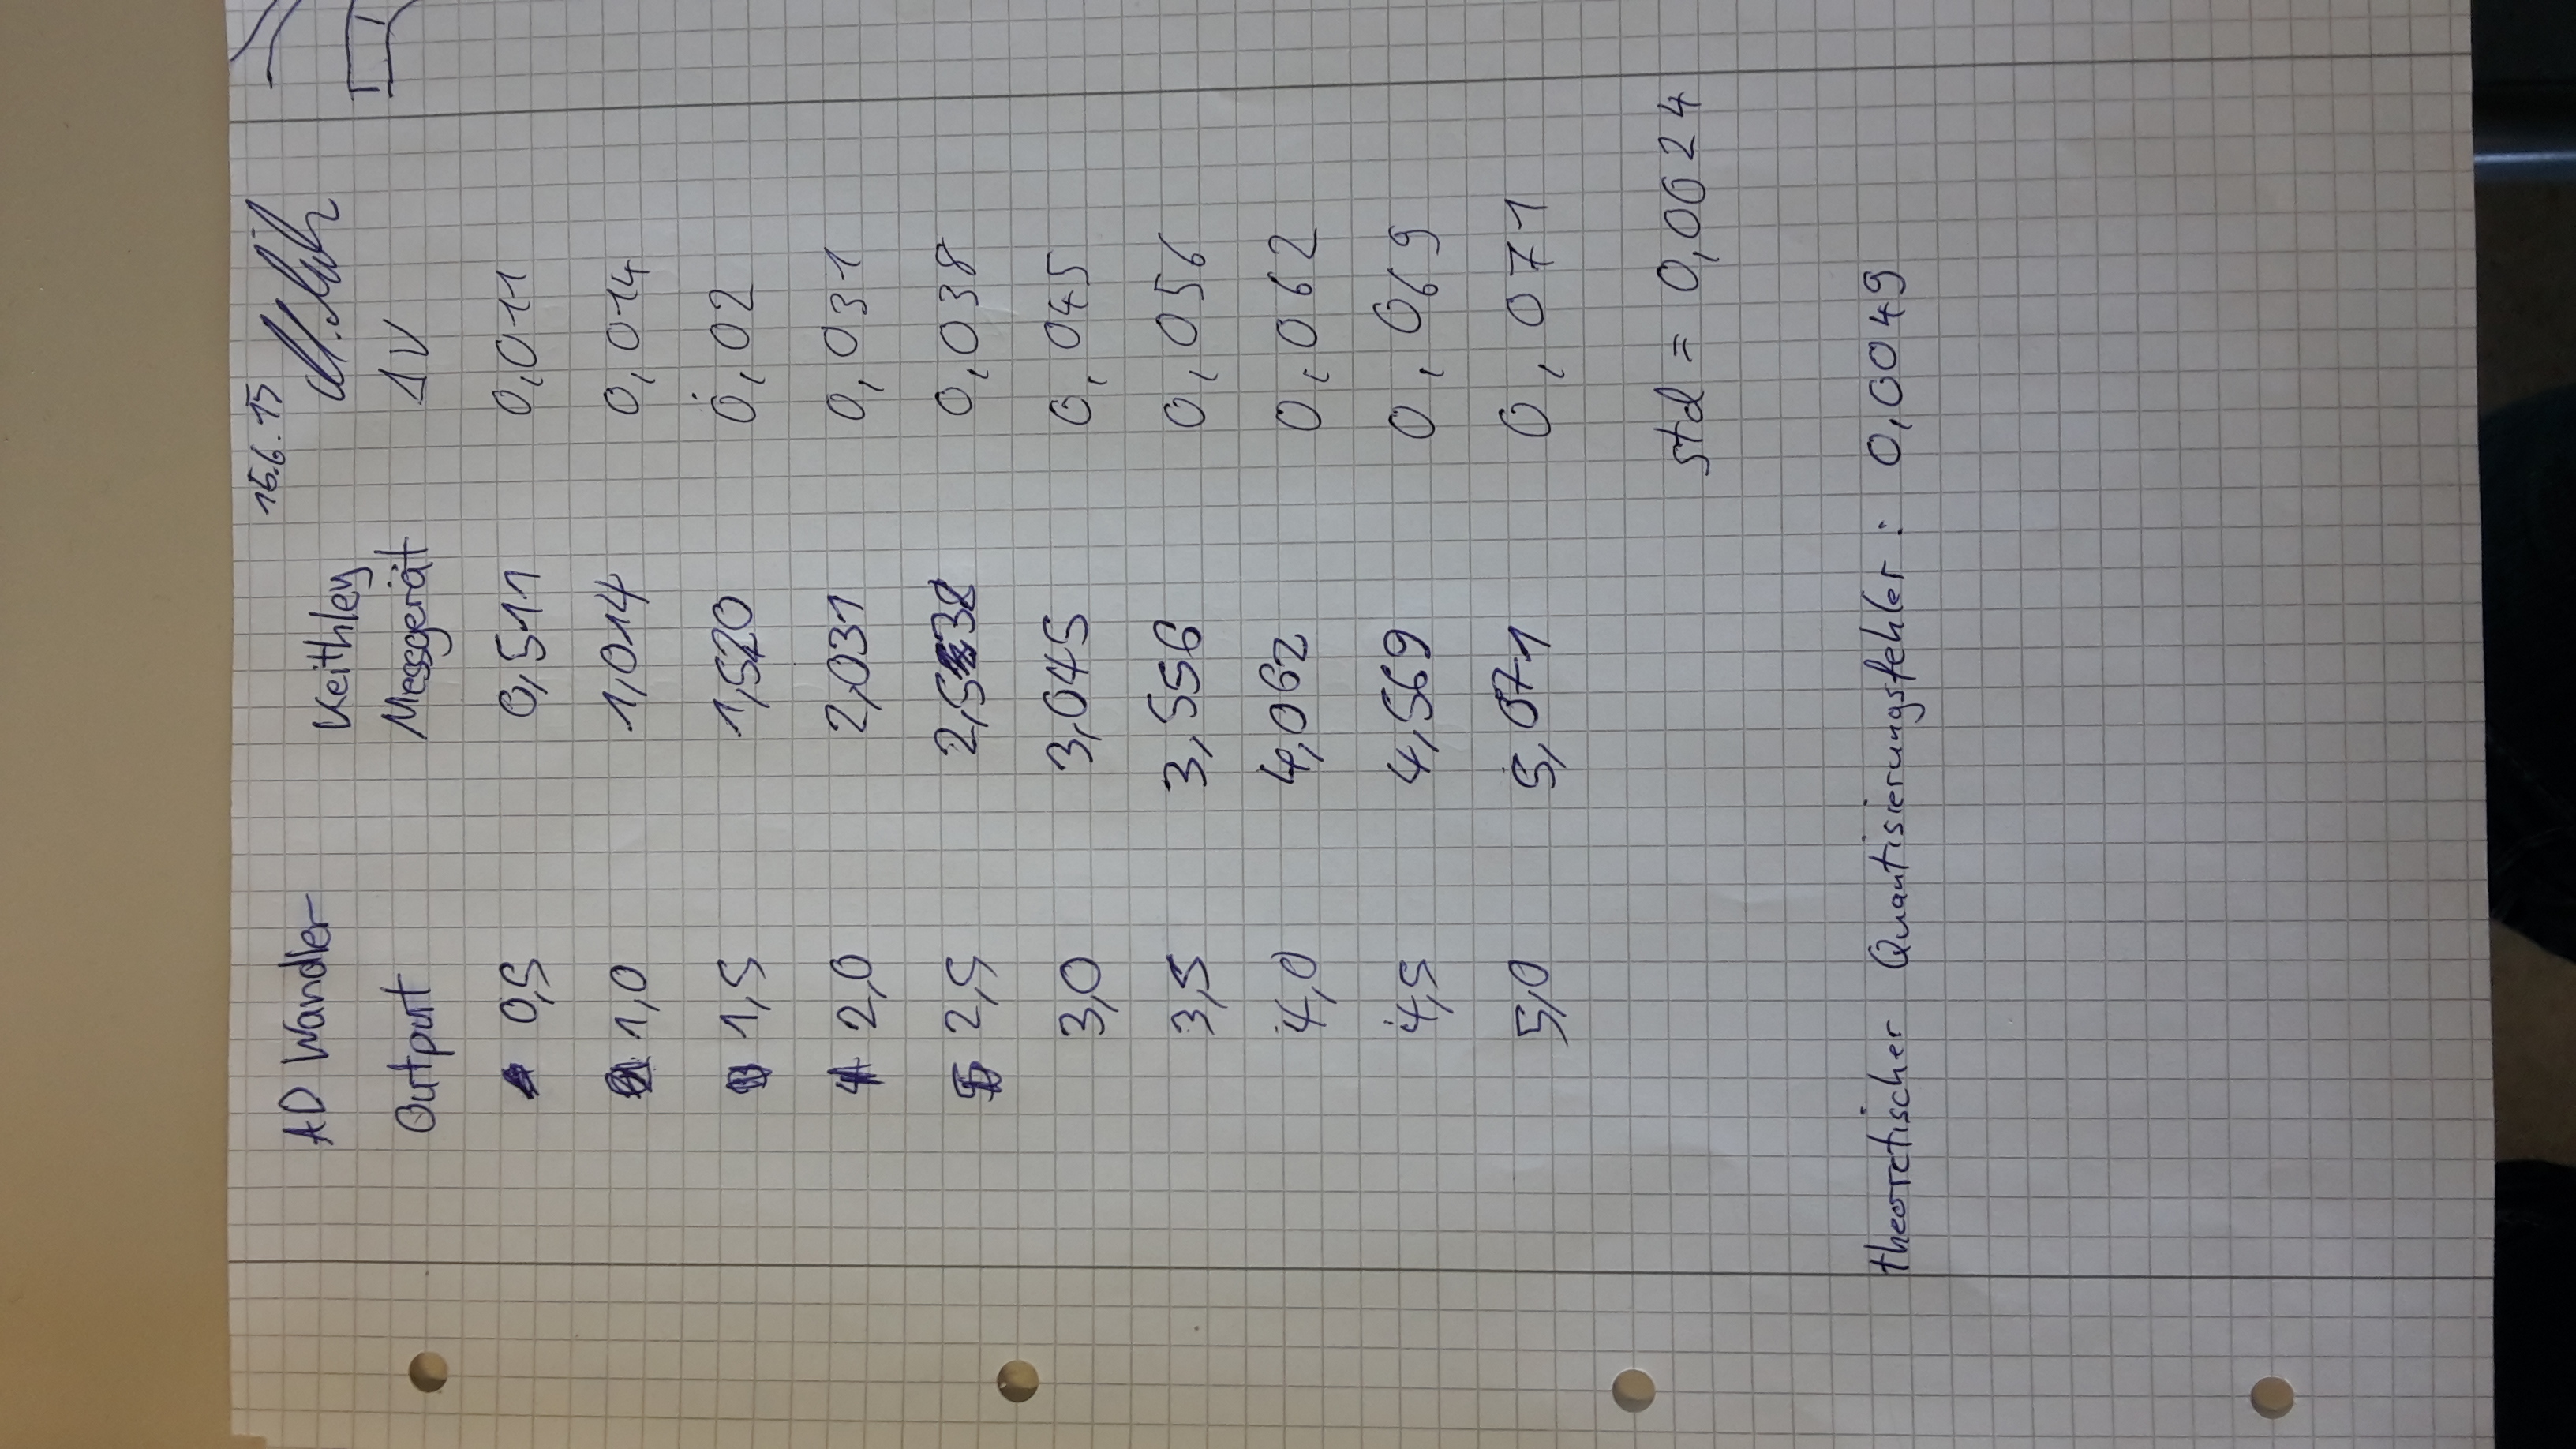 16.6.15
AD Wandler Keithley
Output Messgerät ΔV
0,5 0,511 0,011
1,0 1,014 0,014
1,5 1,520 0,02
2,0 2,031 0,031
2,5 2,538 0,038
3,0 3,045 0,045
3,5 3,556 0,056
4,0 4,062 0,062
4,5 4,569 0,069
5,0 5,071 0,071
std = 0,0024
theoretischer Quantisierungsfehler: 0,0049